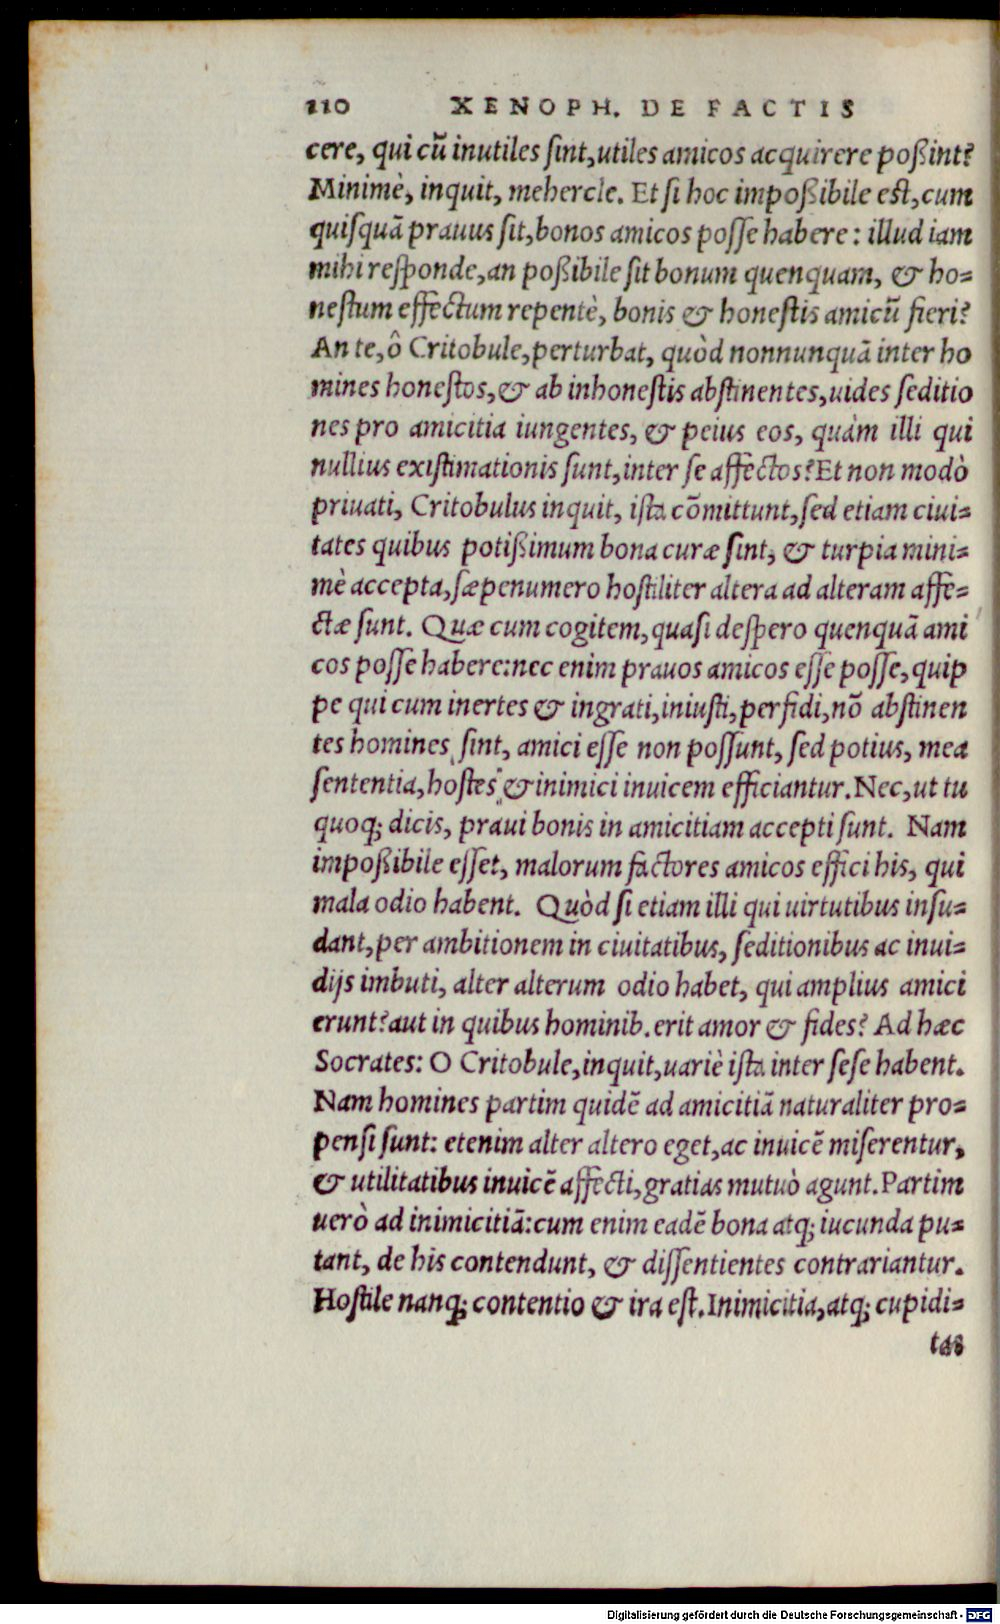 110 XENOPH. DE FACTIS
cere, qui cũ inutiles ſint, utiles amicos acquirere poßint?
Minimè, inquit, mehercle. Et ſi hoc impoßibile est, cum
quiſquã prauus ſit, bonos amicos poſſe habere: illud iam
mihi reſponde, an poßibile ſit bonum quenquam, & ho=
neſtum effectum repentè, bonis & honeſtis amicũ fieri?
An te, ô Critobule, perturbat, quòd nonnunquã inter ho
mines honeſtos, & ab inhoneſtis abſtinentes, uides ſeditio
nes pro amicitia iungentes, & peius eos, quàm illi qui
nullius exiſtimationis ſunt, inter ſe affectos? Et non modò
priuati, Critobulus inquit, iſta cõmittunt, ſed etiam ciui=
tates quibus potißimum bona curæ ſint, & turpia mini=
mè accepta, ſæpenumero hoſtiliter altera ad alteram affe=
ctæ ſunt. Quæ cum cogitem, quaſi deſpero quenquã ami
cos poſſe habere: nec enim prauos amicos eſſe poſſe, quip
pe qui cum inertes & ingrati, iniuſti, perfidi, nõ abſtinen
tes homines ſint, amici eſſe non poſſunt, ſed potius, mea
ſententia, hoſtes & inimici inuicem efficiantur. Nec, ut tu
quoq; dicis, praui bonis in amicitiam accepti ſunt. Nam
impoßibile eſſet, malorum factores amicos effici his, qui
mala odio habent. Quòd ſi etiam illi qui uirtutibus inſu=
dant, per ambitionem in ciuitatibus, ſeditionibus ac inui=
dijs imbuti, alter alterum odio habet, qui amplius amici
erunt? aut in quibus hominib. erit amor & fides? Ad hæc
Socrates: O Critobule, inquit, uariè iſta inter ſeſe habent.
Nam homines partim quidẽ ad amicitiã naturaliter pro=
penſi ſunt: etenim alter altero eget, ac inuicẽ miſerentur,
& utilitatibus inuicẽ affecti, gratias mutuò agunt. Partim
uerò ad inimicitiã: cum enim eadẽ bona atq; iucunda pu=
tant, de his contendunt, & diſſentientes contrariantur.
Hoſtile nanq; contentio & ira eſt. Inimicitia, atq; cupidi=
tas
Digitalisierung gefördert durch die Deutsche Forschungsgemeinschaft - DFG